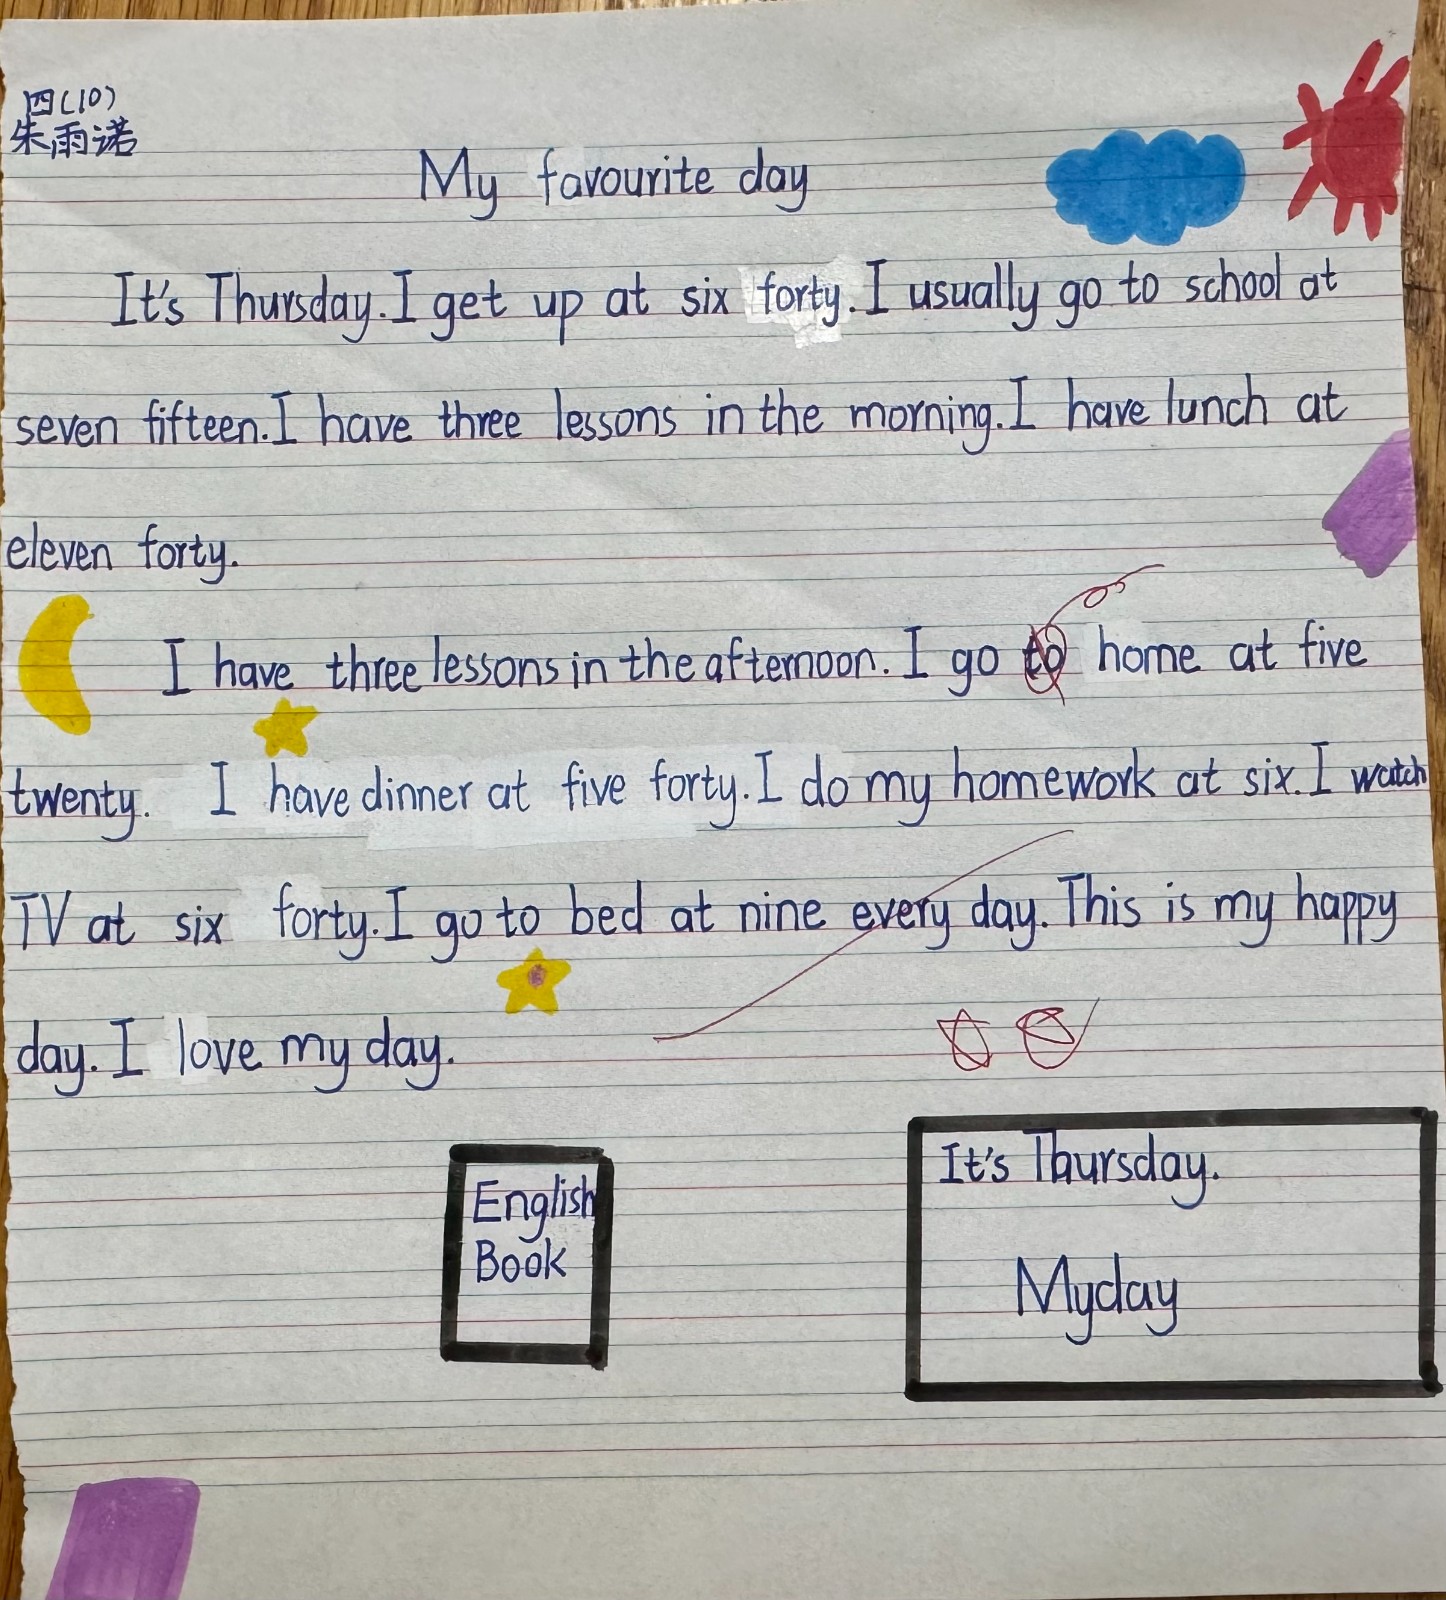 四(10)
朱雨诺
My favourite day
It's Thursday. I get up at six forty. I usually go to school at
seven fifteen. I have three lessons in the morning. I have lunch at
eleven forty.
I have three lessons in the afternoon. I go to home at five
twenty. I have dinner at five forty. I do my homework at six. I watch
TV at six forty. I go to bed at nine every day. This is my happy
day. I love my day.
English
Book
It's Thursday.
Myday